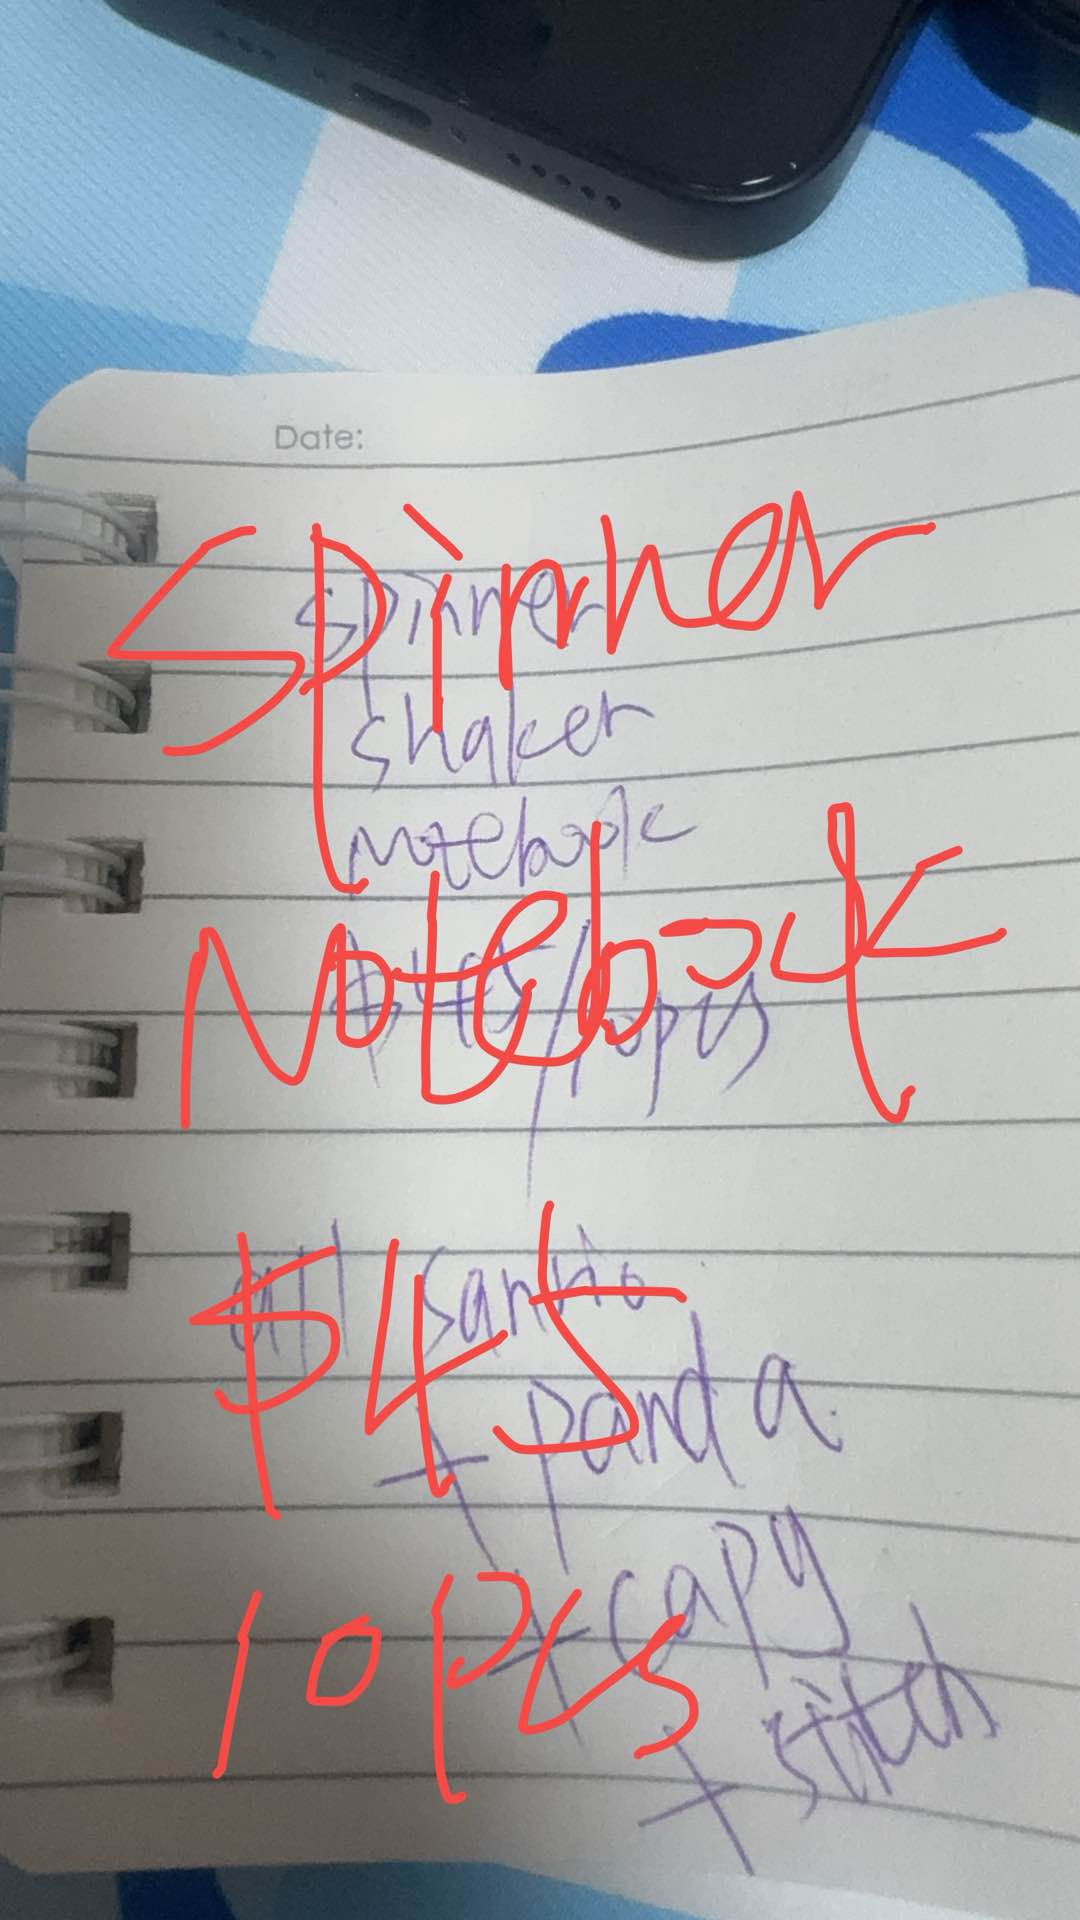 Date:
spinner
shaker
notebook
$45/10pcs
all sanrio
+ panda
+ capy
+ stitch
Spinner
Notebook
$45
10pcs